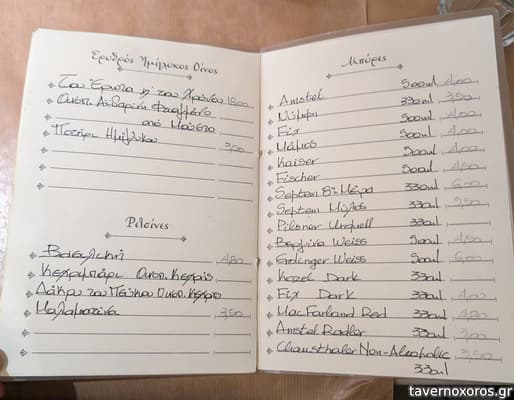 Ερυθρός Ημίγλυκος Οίνος
Του Έρωτα κι του Χρόνου 18,00
από Μούστο
Ποτήρι Ημίγλυκο 3,50
Ρετσίνες
Βασιλική 4,80
Κεχριμπάρι Οινοπ. Κεχρής
Δάκρυ του Πεύκου Οινοπ. Κεχρής
Μαλαματίνα 3,50
Μπύρες
Amstel 500ml 4,00
Νύμφη 330ml 3,50
Fix 500ml 4,00
Μάμος 500ml 4,00
Kaiser 500ml 4,50
Fischer 500ml 4,50
Septem 8η Μέρα 330ml 6,00
Septem Μύλος 330ml 5,50
Pilsner Urquell 330ml
Βεργίνα Weiss 500ml 4,50
Erdinger Weiss 500ml 6,00
Kozel Dark 330ml
Fix Dark 330ml 4,00
MacFarland Red 330ml 4,00
Amstel Radler 330ml 3,00
Clausthaler Non-Alcoholic 3,50
330ml
tavernoxoros.gr